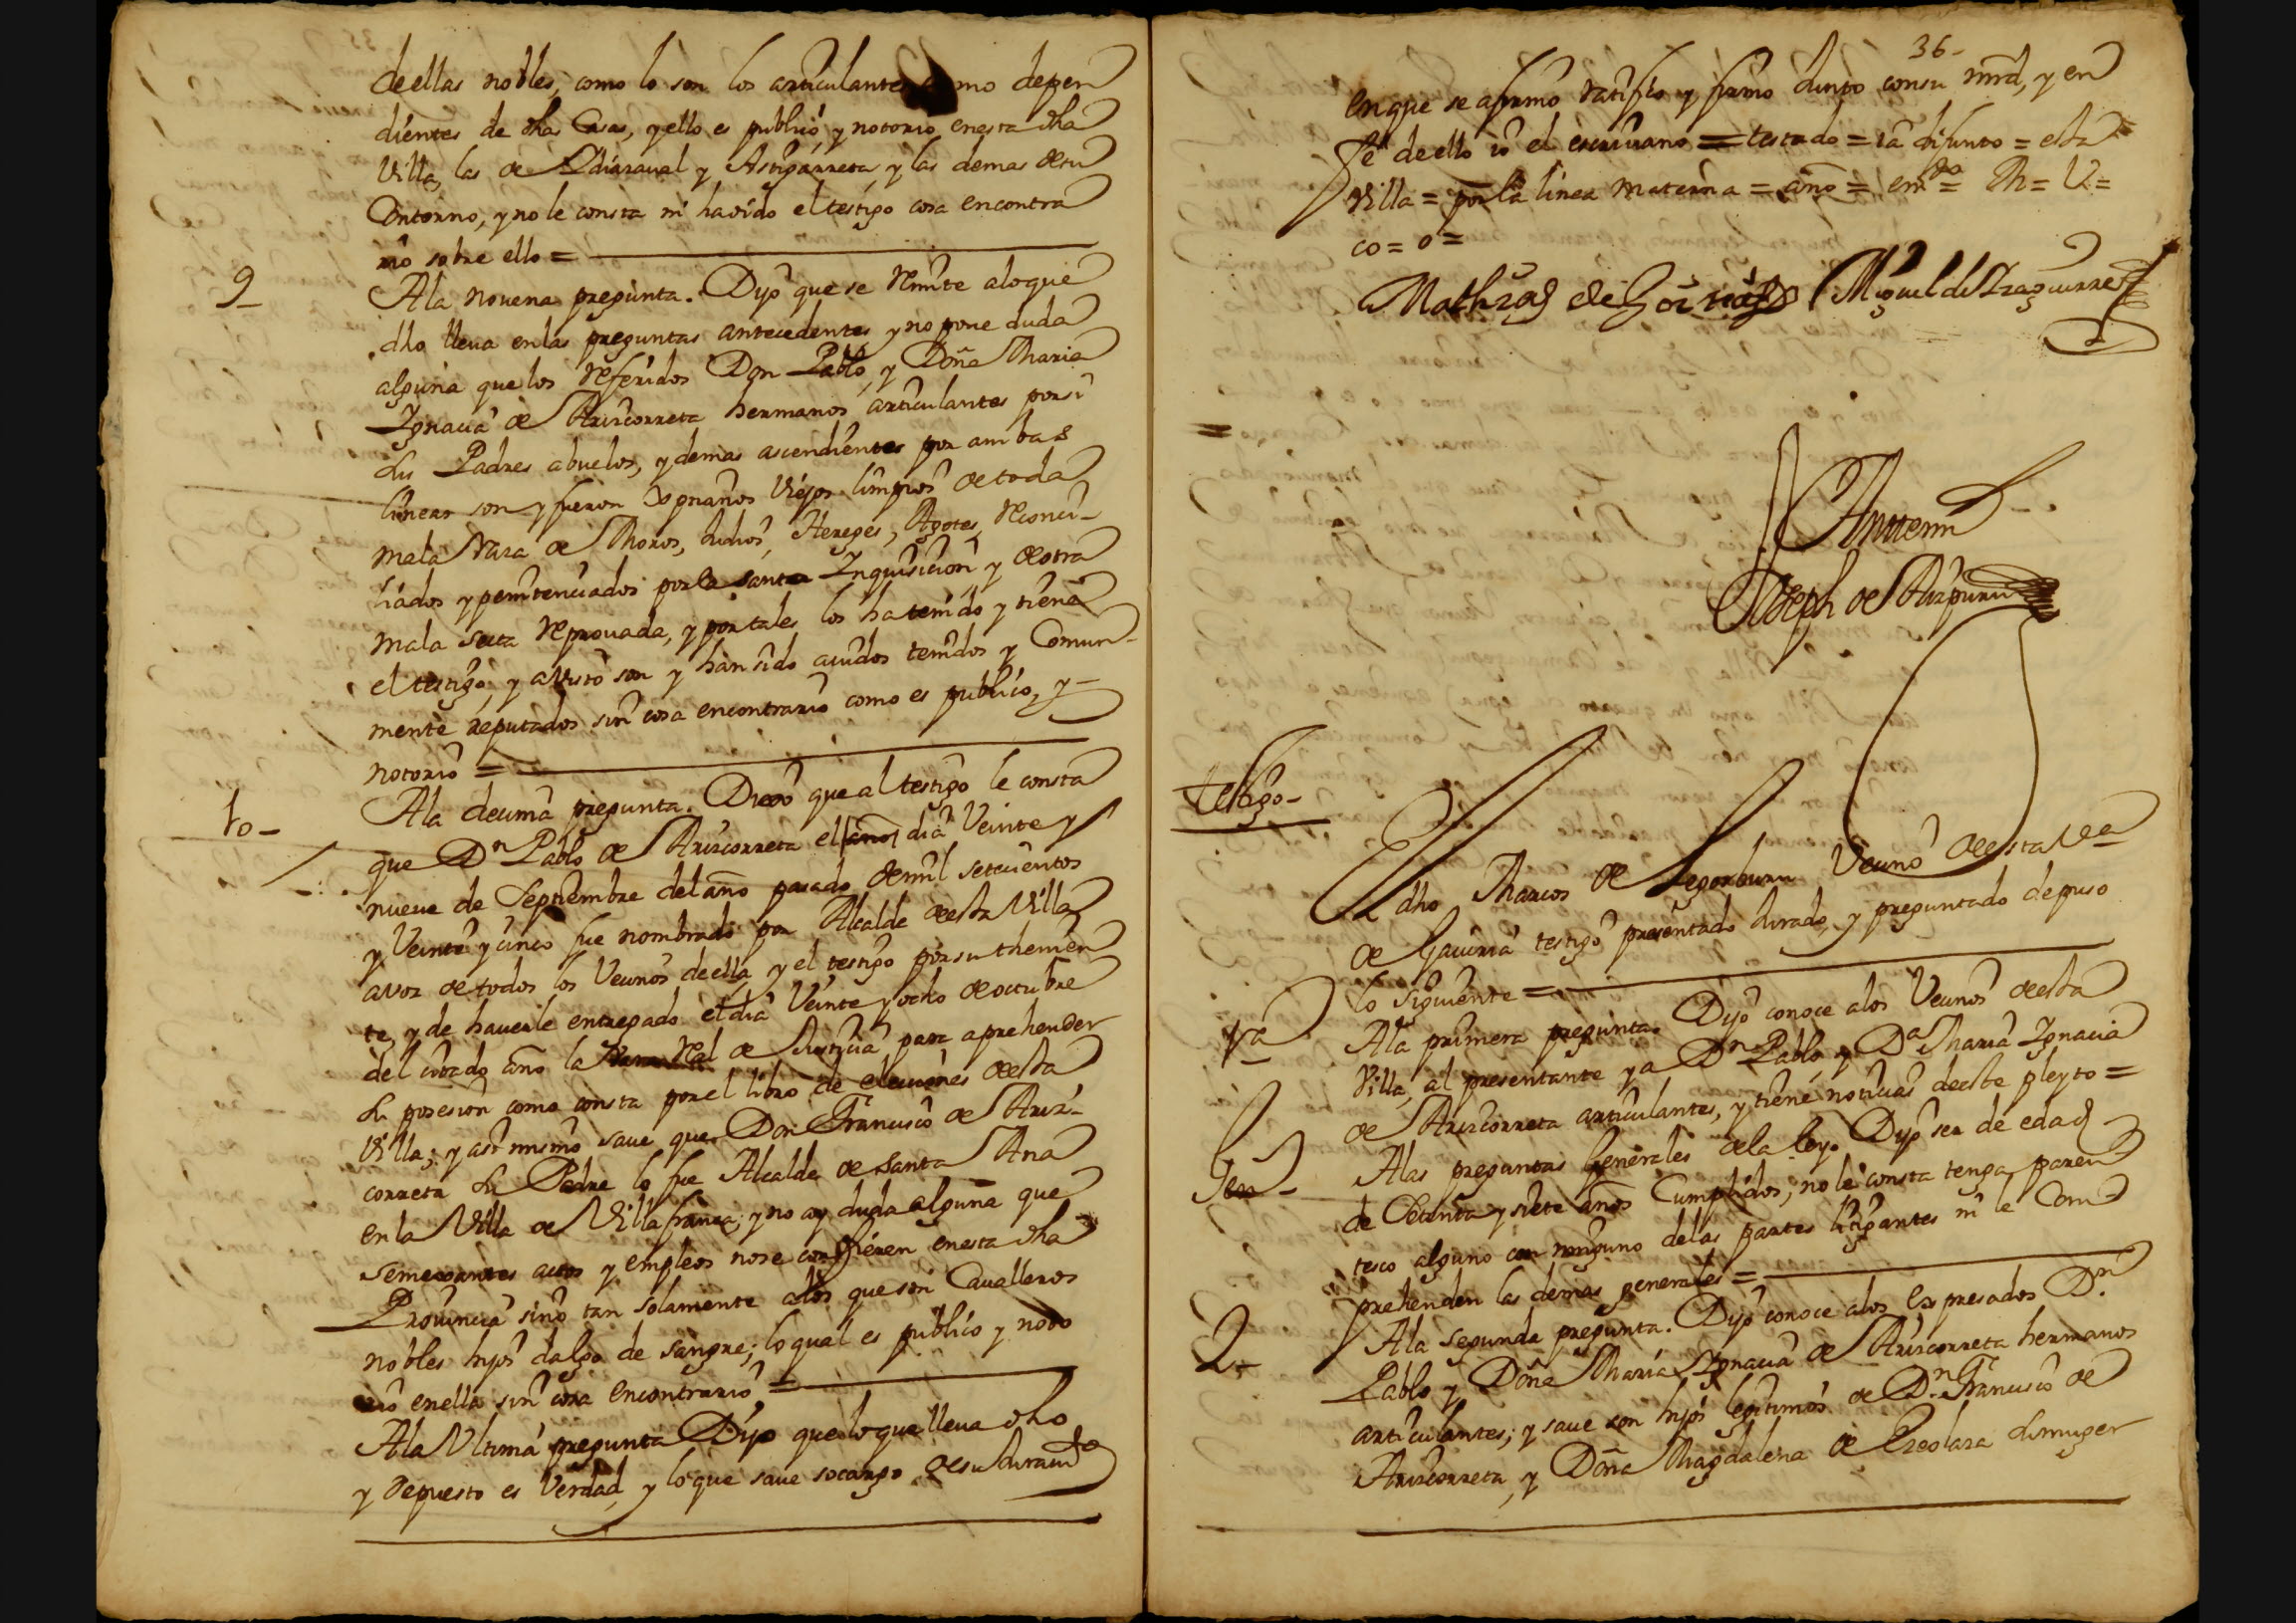 de ellas nobles, como lo son los articulantes como depen
dientes de dhas Casas, y ello es publico y notorio en esta dha
Villa, las de y Astigarreta y las demas de su
Contorno, y no le consta ni ha auido el testigo cosa en contra
rio sobre ello =
9 A la nouena pregunta. Dijo que se Remite a lo que
dho lleua en las preguntas antecedentes y no pone duda
alguna que los referidos Don Pablo, y Doña Maria
Ignacia de Arizcorreta hermanos articulantes por si
sus Padres abuelos, y demas ascendientes por ambas
lineas son y fueron Xpnanos Viejos limpios de toda
mala Raza de Moros, Judios, Hereges, Agotes, Reconci-
liados y penitenciados por la santa Inquisicion y de otra
mala secta reprouada, y por tales los ha tenido y tiene
el testigo, y a visto son y han sido auidos tenidos y Comun-
mente reputados sin cosa en contrario como es publico, y
notorio =
10 A la decima pregunta. Dixo que al testigo le consta
que Dn Pablo de Arizcorreta el año dia Veinte y
nueue de Septiembre del año pasado de mil setecientos
y Veinte y cinco fue nombrado por Alcalde de esta Villa
a voz de todos los Vecinos de ella, y el testigo por su thenien
te, y de hauerle entregado el dia Veinte y ocho de octubre
del citado año la Vara Real de Justicia para aprehender
su posesion como consta por el libro de elecciones de esta
Villa; y asi mismo saue que Don Francisco de Ariz-
correta su Padre lo fue Alcalde de Santa Ana
en la Villa de Villafranca; y no ay duda alguna que
semexantes actos y empleos no se confieren en esta dha
Prouincia sino tan solamente a los que son Caualleros
nobles hijos dalgo de sangre; lo qual es publico y noto
rio en ella sin cosa en contrario =
A la Vltima pregunta Dijo que lo que lleua dho
y depuesto es Verdad, y lo que saue so cargo de su Juramto
36-
en que se afirmo ratifico y firmo Junto con su mrd, y en
fe de ello io el escriuano = testado = ia difunto = esta
Villa = por la linea materna = año = emdo = M = V =
co = o =
Mathias de Miguel de Izaguirre
Antemi
Joseph de Aizpuru
testigo-
El dho Marcos de Legorburu Vecino de esta Va
de Gauiria testigo presentado Jurado, y preguntado depuso
lo siguiente =
1a A la primera pregunta. Dijo conoce a los Vecinos de esta
Villa, al presentante y a Dn Pablo, y Da Maria Ignacia
de Arizcorreta articulantes, y tiene noticias de este pleyto =
Gen- A las preguntas Generales de la ley. Dijo ser de edad
de Setenta y siete años Cumplidos, no le consta tenga paren
tesco alguno con ninguno de las partes litigantes ni le Com
prehenden las demas generales =
2- A la segunda pregunta. Dijo conoce a los Expresados Dn
Pablo y Doña Maria Ignacia de Arizcorreta hermanos
articulantes; y saue son hijos legitimos de Dn Francisco de
Arizcorreta, y Doña Magdalena de Ereolaza su muger